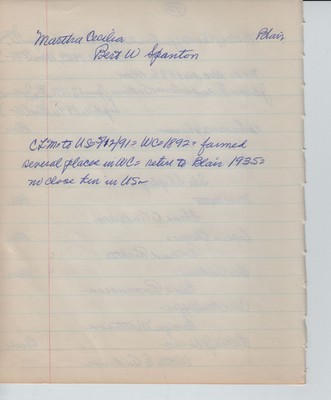 Martha Cecilia Blair
Bert W Spanton
to US= WC=1892= farmed
several places in WC= retire to Blair 1935=
no close kin in US=